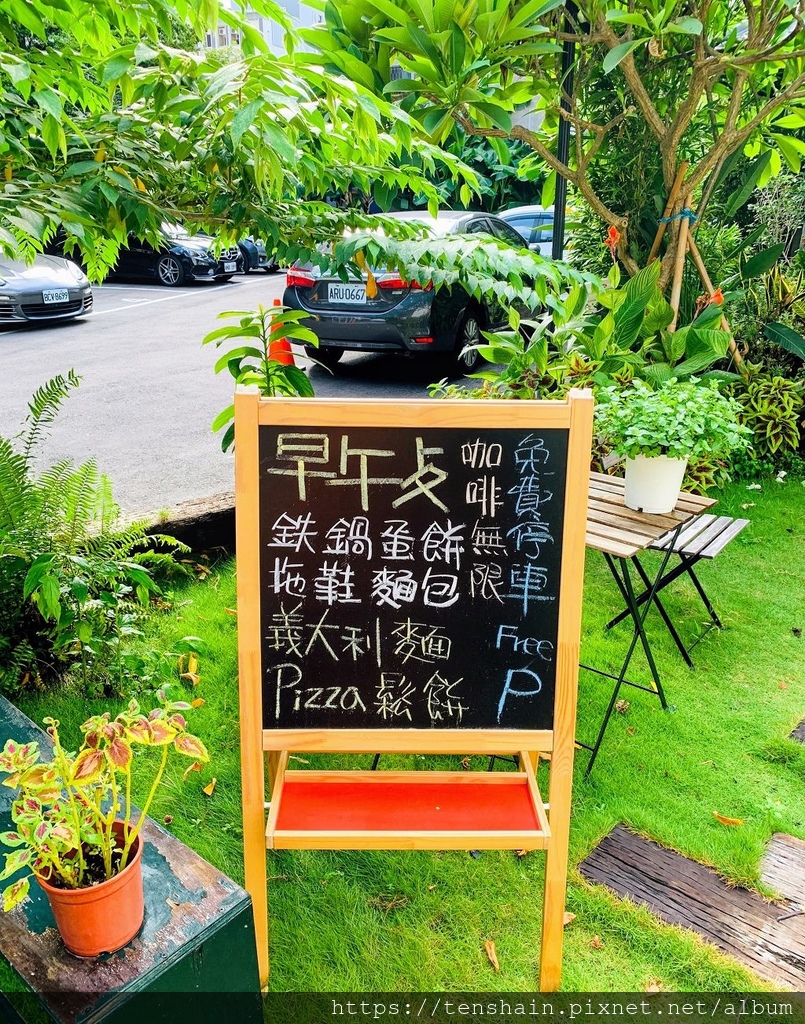 早午久
鉄鍋蛋餅
拖鞋麵包
義大利麵
Pizza鬆餅
咖啡無限
免費停車
Free
P
BCV 8699
ARU 0667
https://tenshain.pixnet.net/album